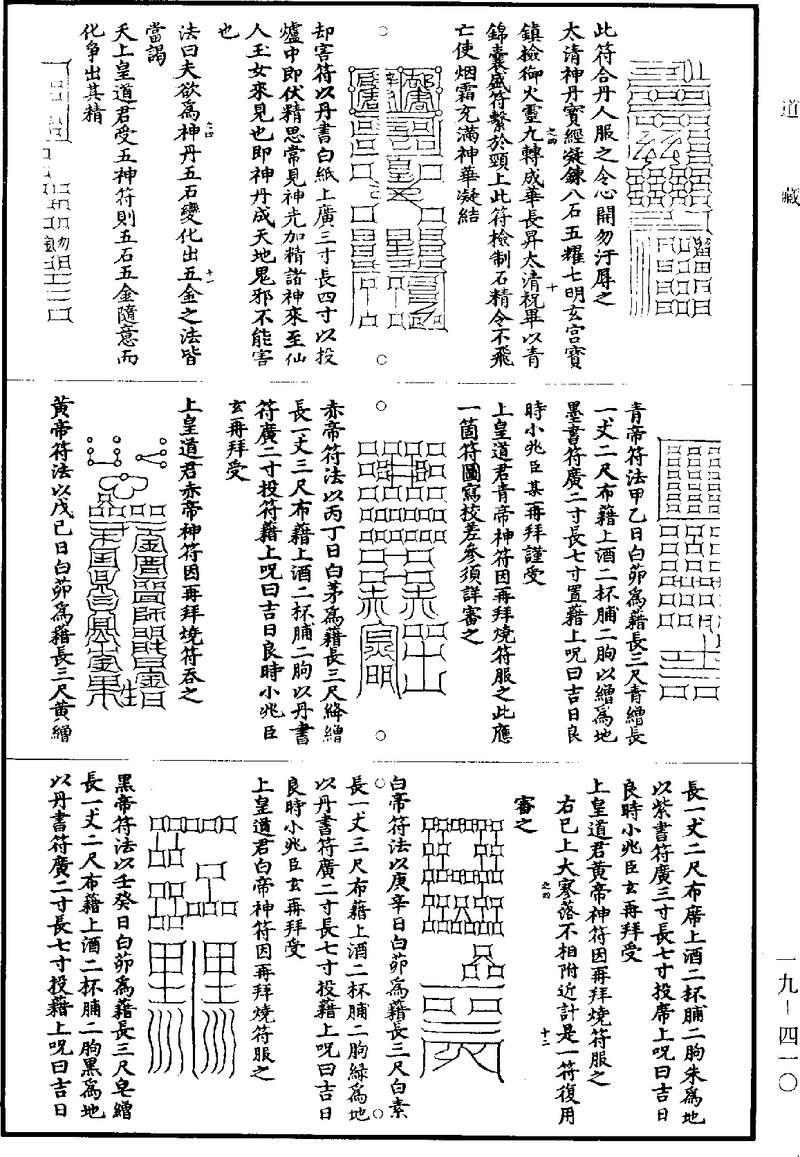 道藏
此符合丹人服之令心開勿汙辱之
太清神丹寶經凝鍊八石五耀七明玄宮寶
鎮檢御火靈九轉成華長昇太清祝畢以青
錦囊盛符繫於頸上此符檢制石精令不飛
亡使烟霜充滿神華凝結
之四
十
却害符以丹書白紙上廣三寸長四寸以投
爐中即伏精思常見神光加精諸神來至仙
人玉女來見也即神丹成天地鬼邪不能害
也
法曰夫欲為神丹五石變化出五金之法皆
當謁
天上皇道君受五神符則五石五金隨意而
化爭出其精
之四
十一
青帝符法甲乙日白茆為藉長三尺青繒長
一丈二尺布藉上酒二杯脯二朐以繒為地
墨書符廣二寸長七寸置藉上呪曰吉日良
時小兆臣某再拜謹受
上皇道君青帝神符因再拜燒符服之此應
一箇符圖寫校差參須詳審之
赤帝符法以丙丁日白茅為藉長三尺絳繒
長一丈三尺布藉上酒二杯脯二朐以丹書
符廣二寸投符藉上呪曰吉日良時小兆臣
玄再拜受
上皇道君赤帝神符因再拜燒符吞之
黃帝符法以戊己日白茆為藉長三尺黃繒
長一丈二尺布席上酒二杯脯二朐朱為地
以紫書符廣三寸長七寸投席上呪曰吉日
良時小兆臣玄再拜受
上皇道君黃帝神符因再拜燒符服之
右已上大寥落不相附近計是一符復用
審之
之四
十二
白帝符法以庚辛日白茆為藉長三尺白素
長一丈三尺布藉上酒二杯脯二朐綠為地
以丹書符廣二寸長七寸投藉上呪曰吉日
良時小兆臣玄再拜受
上皇道君白帝神符因再拜燒符服之
黑帝符法以壬癸日白茆為藉長三尺皂繒
長一丈二尺布藉上酒二杯脯二朐黑為地
以丹書符廣二寸長七寸投藉上呪曰吉日
一九－四一〇